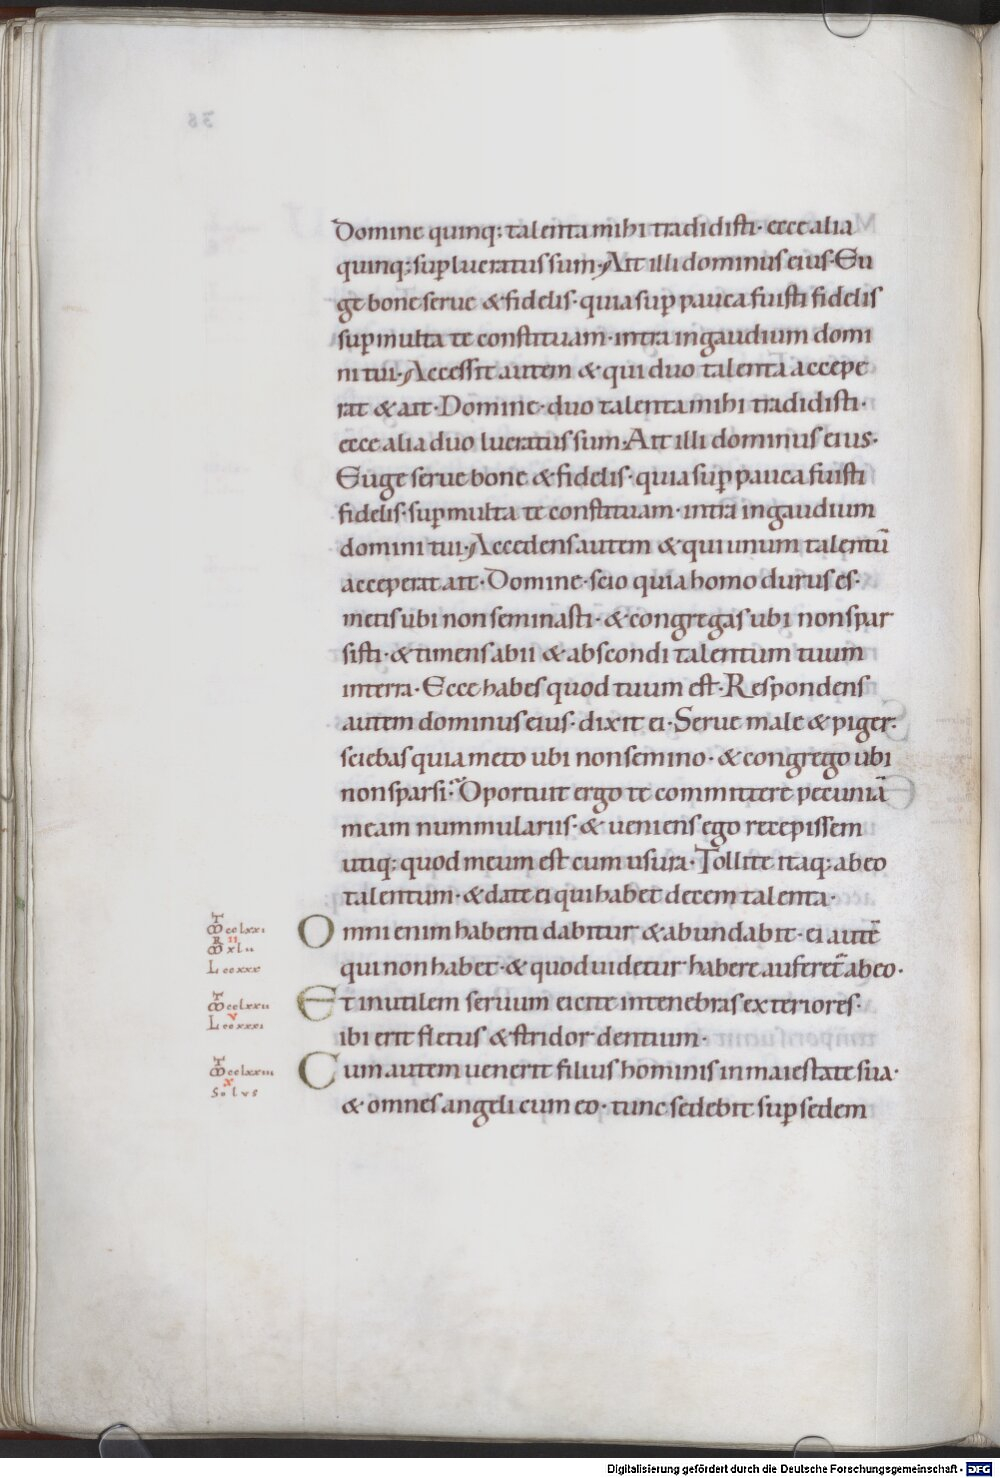 Domine quinq: talenta mihi tradidisti· ecce alia
quinq: sup̱ lucratus sum· Ait illi dominus eius· Eu
ge bone serue & fidelis· quia sup̱ pauca fuisti fidelis
sup̱ multa te constituam· intra in gaudium domi
ni tui· Accessit autem & qui duo talenta accepe
rat & ait· Domine· duo talenta mihi tradidisti·
ecce alia duo lucratus sum· Ait illi dominus eius·
Euge serue bone & fidelis· quia sup̱ pauca fuisti
fidelis· sup̱ multa te constituam· intra in gaudium
domini tui· Accedens autem & qui unum talentū
acceperat ait· Domine· scio quia homo durus es·
metis ubi non seminasti· & congregas ubi non spar
sisti· & timens abii & abscondi talentum tuum
in terra· Ecce habes quod tuum est· Respondens
autem dominus eius· dixit ei· Serue male & piger·
sciebas quia meto ubi non semino· & congrego ubi
non sparsi· Oportuit ergo te committere pecuniā
meam nummulariis· & ueniens ego recepissem
utiq: quod meum est cum usura· Tollite itaq: ab eo
talentum· & date ei qui habet decem talenta·
Omni enim habenti dabitur & abundabit· ei autē
qui non habet· & quod uidetur habere auferet̄ ab eo·
Et inutilem seruum eicite in tenebras exteriores·
ibi erit fletus & stridor dentium·
Cum autem uenerit filius hominis in maiestate sua·
& omnes angeli cum eo· tunc sedebit sup̱ sedem
T
M cclxxi
R II
M xlii
L ccxxx
T
M cclxxii
V
L ccxxxi
T
M cclxxiii
X
Solus
38
Digitalisierung gefördert durch die Deutsche Forschungsgemeinschaft - DFG